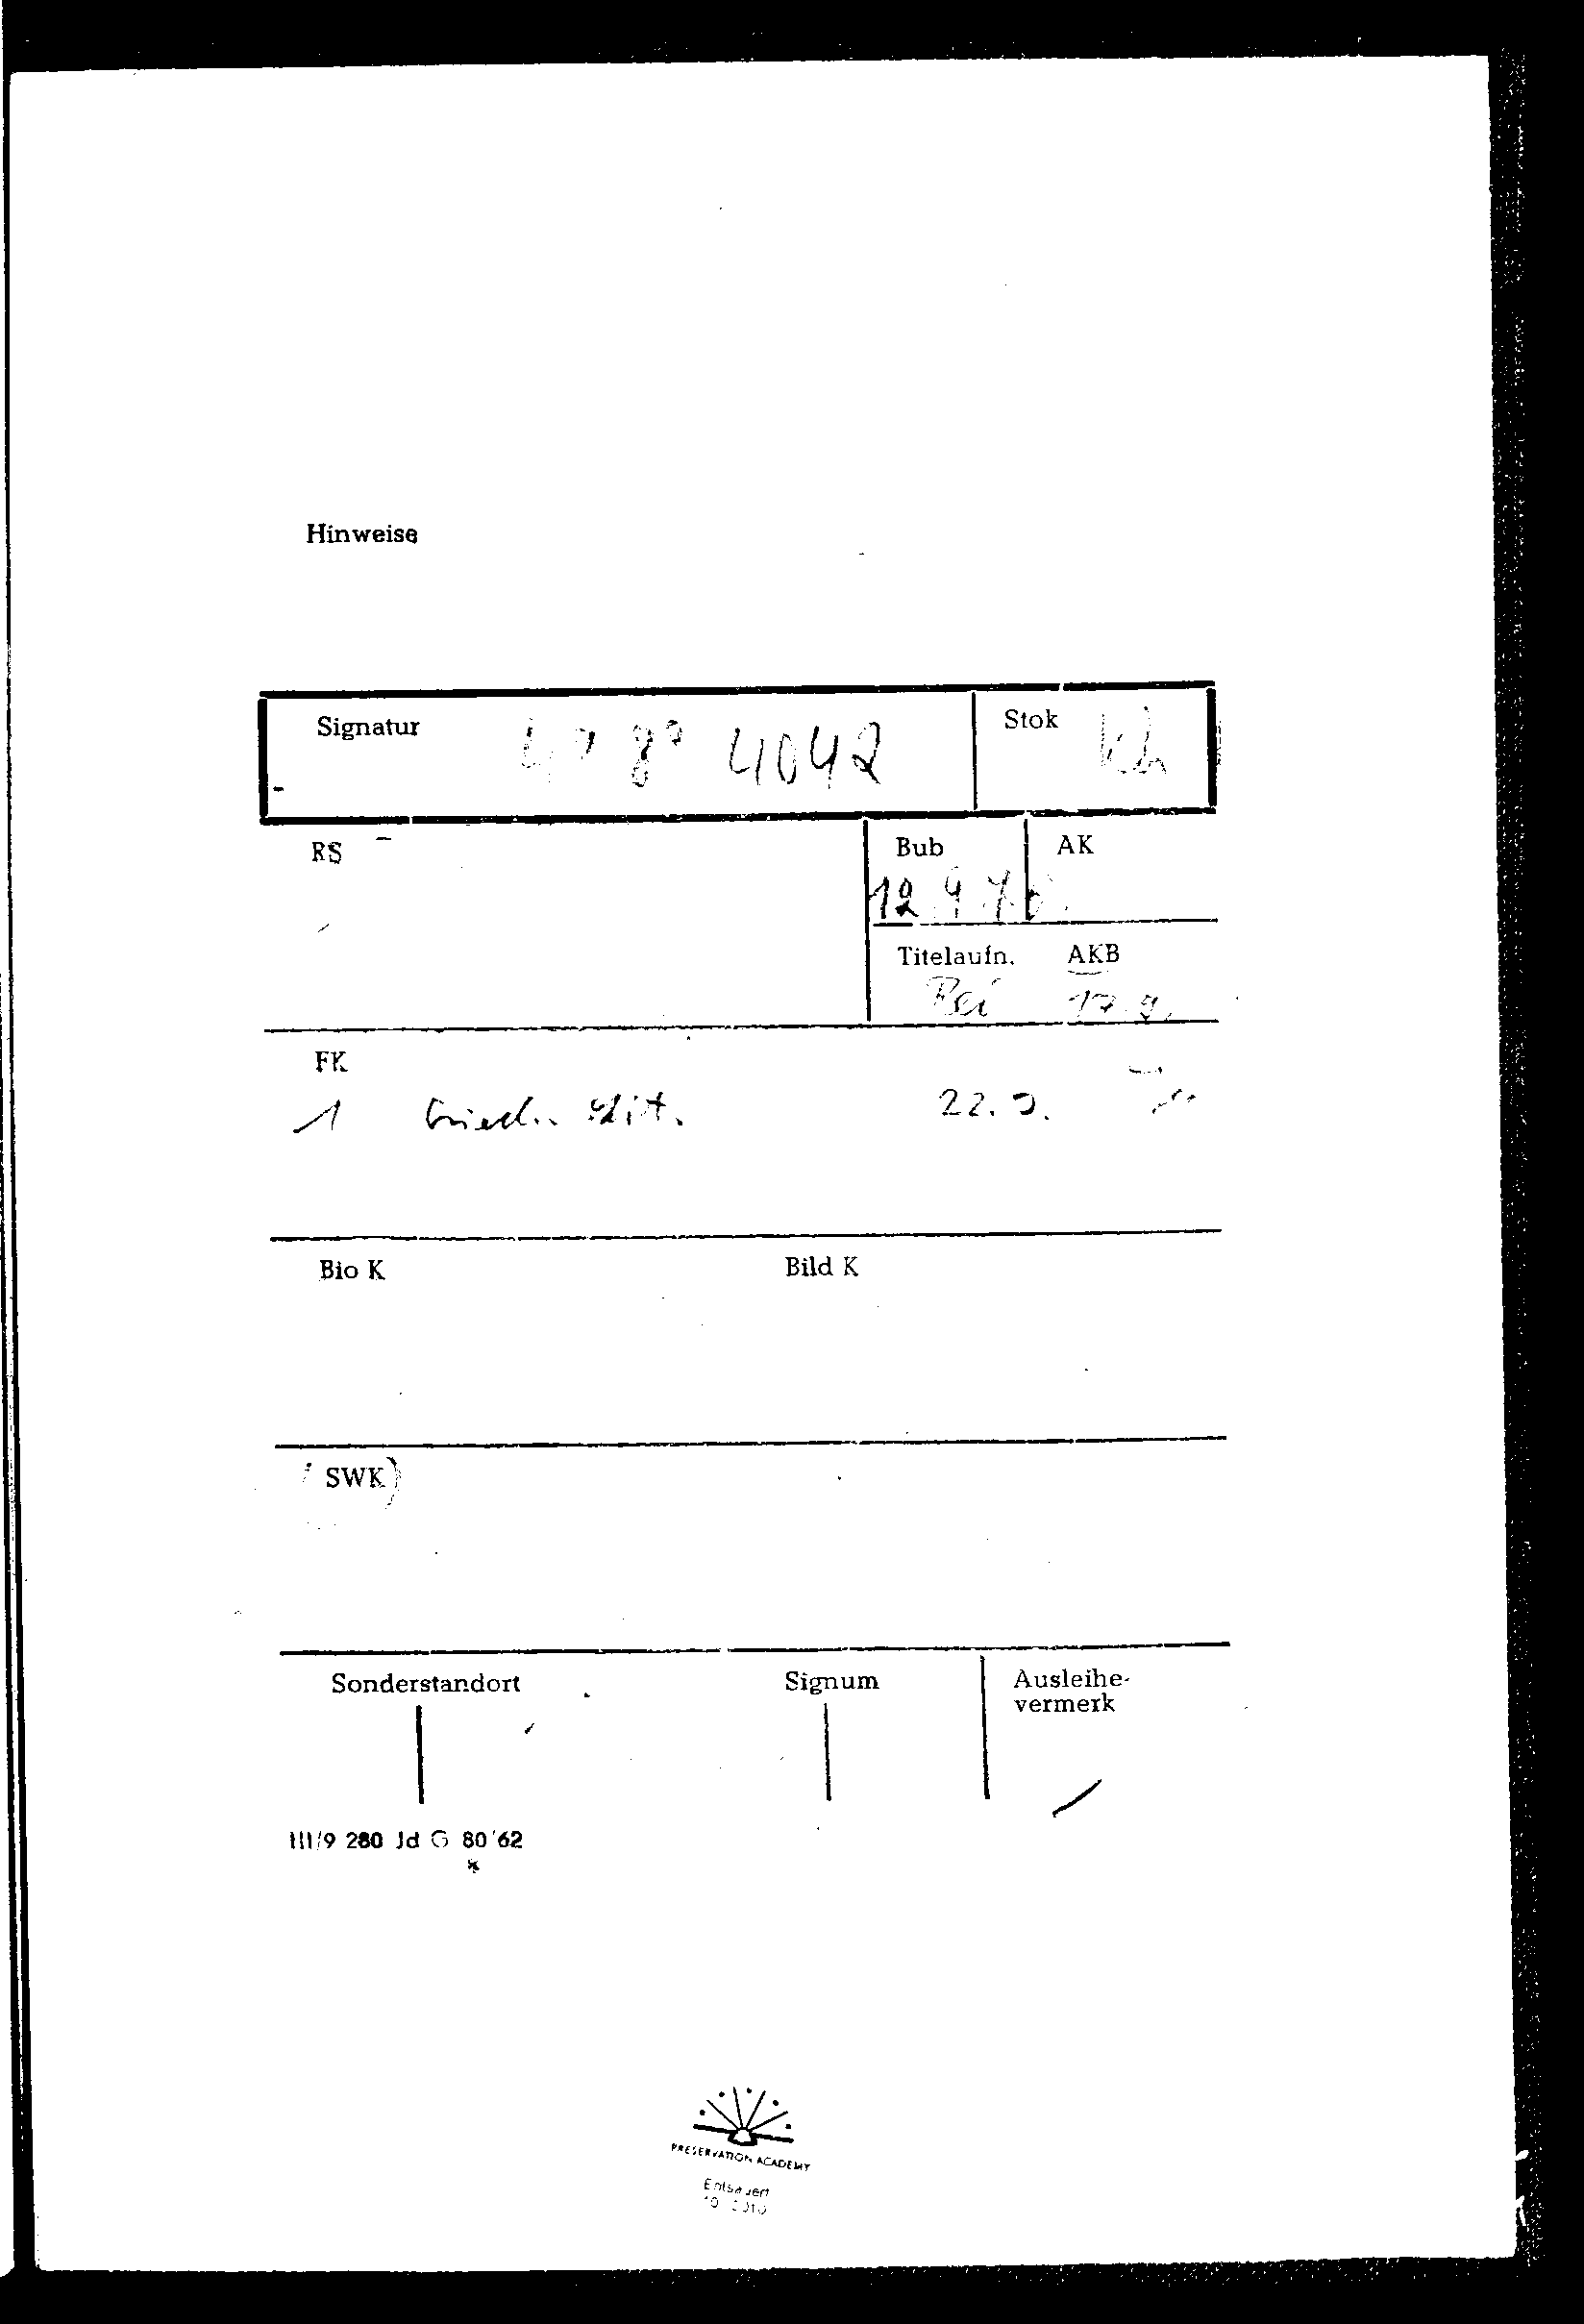 Hinweise
Signatur 47 8° 4042 Stok
RS Bub AK
12.9.78.
Titelaufn. AKB
Rei 17.9.
FK
1 22.9.
Bio K Bild K
(SWK)
Sonderstandort Signum Ausleihe-
vermerk
III/9 280 Jd G 80/62
PRESERVATION ACADEMY
Entsäuert